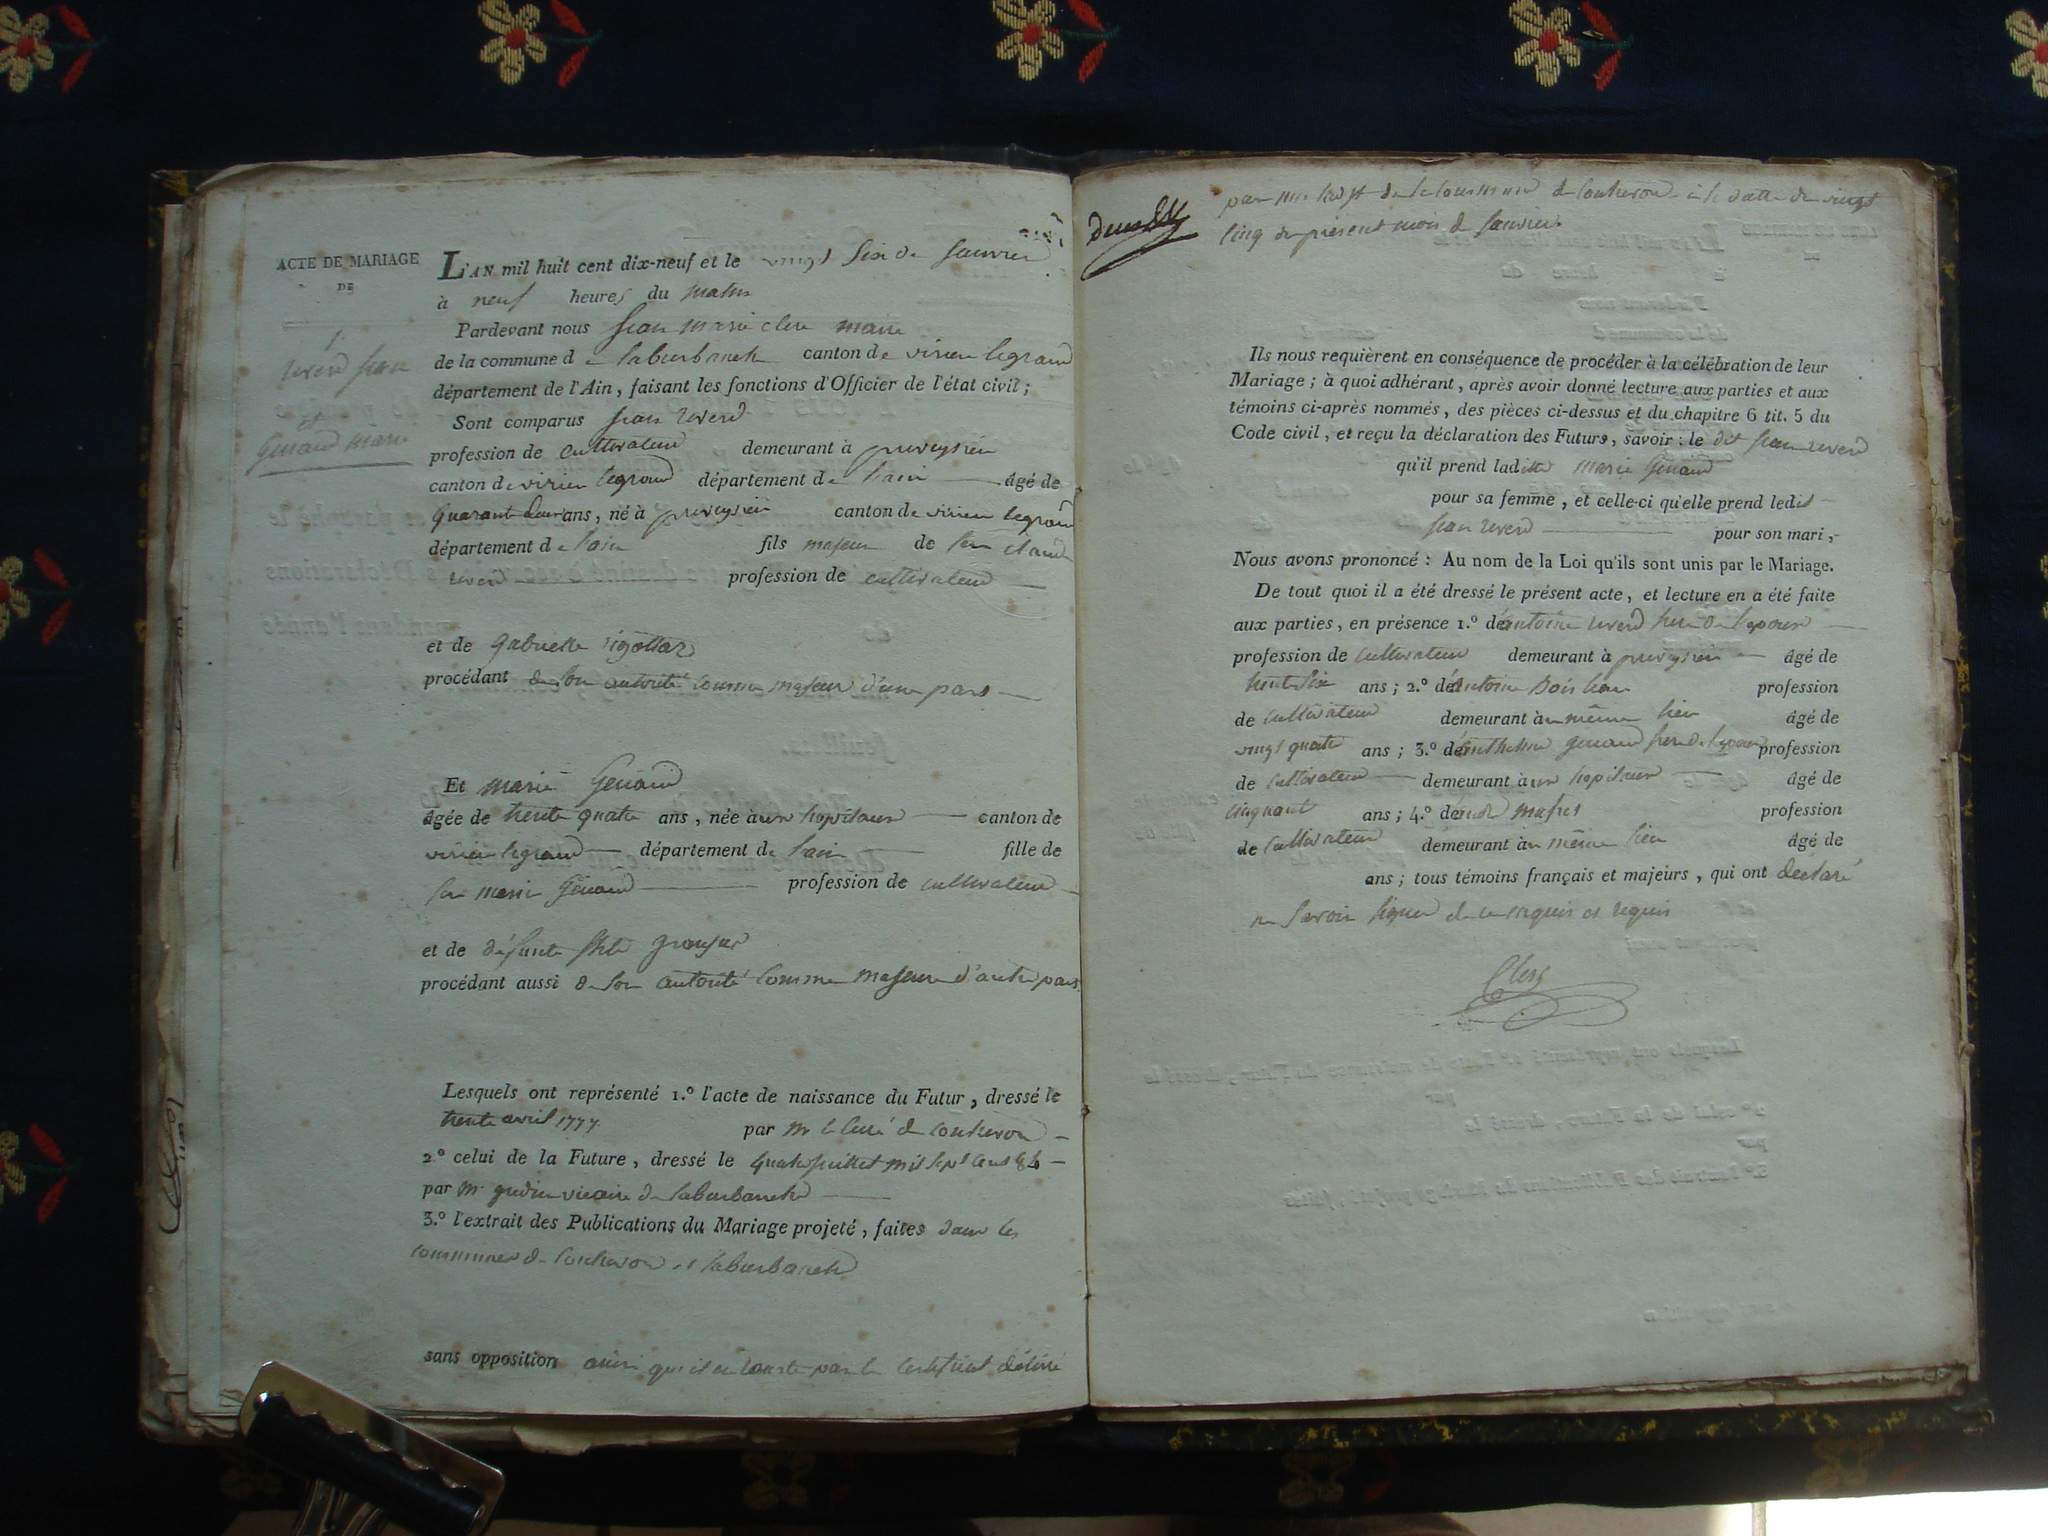 ACTE DE MARIAGE
DE
1.
reverd jean
et
Genaud marie
L'AN mil huit cent dix-neuf et le vingt six de Janvier
à neuf heures du matin
Pardevant nous jean marie clerc maire
de la commune de laburbanche canton de virieu legrand
département de l'Ain, faisant les fonctions d'Officier de l'état civil;
Sont comparus jean reverd
profession de cultivateur demeurant à
canton de virieu legrand département de lain âgé de
quarant deux ans, né à canton de virieu legrand
département de lain fils majeur de feu claude
reverd profession de cultivateur
et de gabrielle
procédant de son autorité comme majeur d'une part
Et marie Genaud
âgée de trente quatre ans, née aux hopitaux canton de
virieu legrand département de lain fille de
profession de cultivateur
et de défunte
procédant aussi de son autorité comme majeure d'autre part
Lesquels ont représenté 1.º l'acte de naissance du Futur, dressé le
trente avril 1777 par mr le curé de
2º celui de la Future, dressé le quatre juillet mil sept cent 84
par mr vicaire de laburbanche
3.º l'extrait des Publications du Mariage projeté, faites dans les
communes de et laburbanche
sans opposition ainsi qu'il en conste par le certificat délivré
par mr de la commune de à la datte du vingt
cinq du présent mois de janvier.
Ils nous requièrent en conséquence de procéder à la célébration de leur
Mariage; à quoi adhérant, après avoir donné lecture aux parties et aux
témoins ci-après nommés, des pièces ci-dessus et du chapitre 6 tit. 5 du
Code civil, et reçu la déclaration des Futurs, savoir: le dit jean reverd
qu'il prend laditte marie Genaud
pour sa femme, et celle-ci qu'elle prend ledit
jean reverd pour son mari,
Nous avons prononcé: Au nom de la Loi qu'ils sont unis par le Mariage.
De tout quoi il a été dressé le présent acte, et lecture en a été faite
aux parties, en présence 1.º de antoine reverd frere de lepoux
profession de cultivateur demeurant à âgé de
trente six ans; 2.º de antoine profession
de cultivateur demeurant au même lieu âgé de
vingt quatre ans; 3.º de anthelme genaud frere de profession
de cultivateur demeurant aux hopitaux âgé de
cinquant ans; 4.º de profession
de cultivateur demeurant au même lieu âgé de
ans; tous témoins français et majeurs, qui ont déclaré
ne savoir signer de ce enquis et requis
Clerc